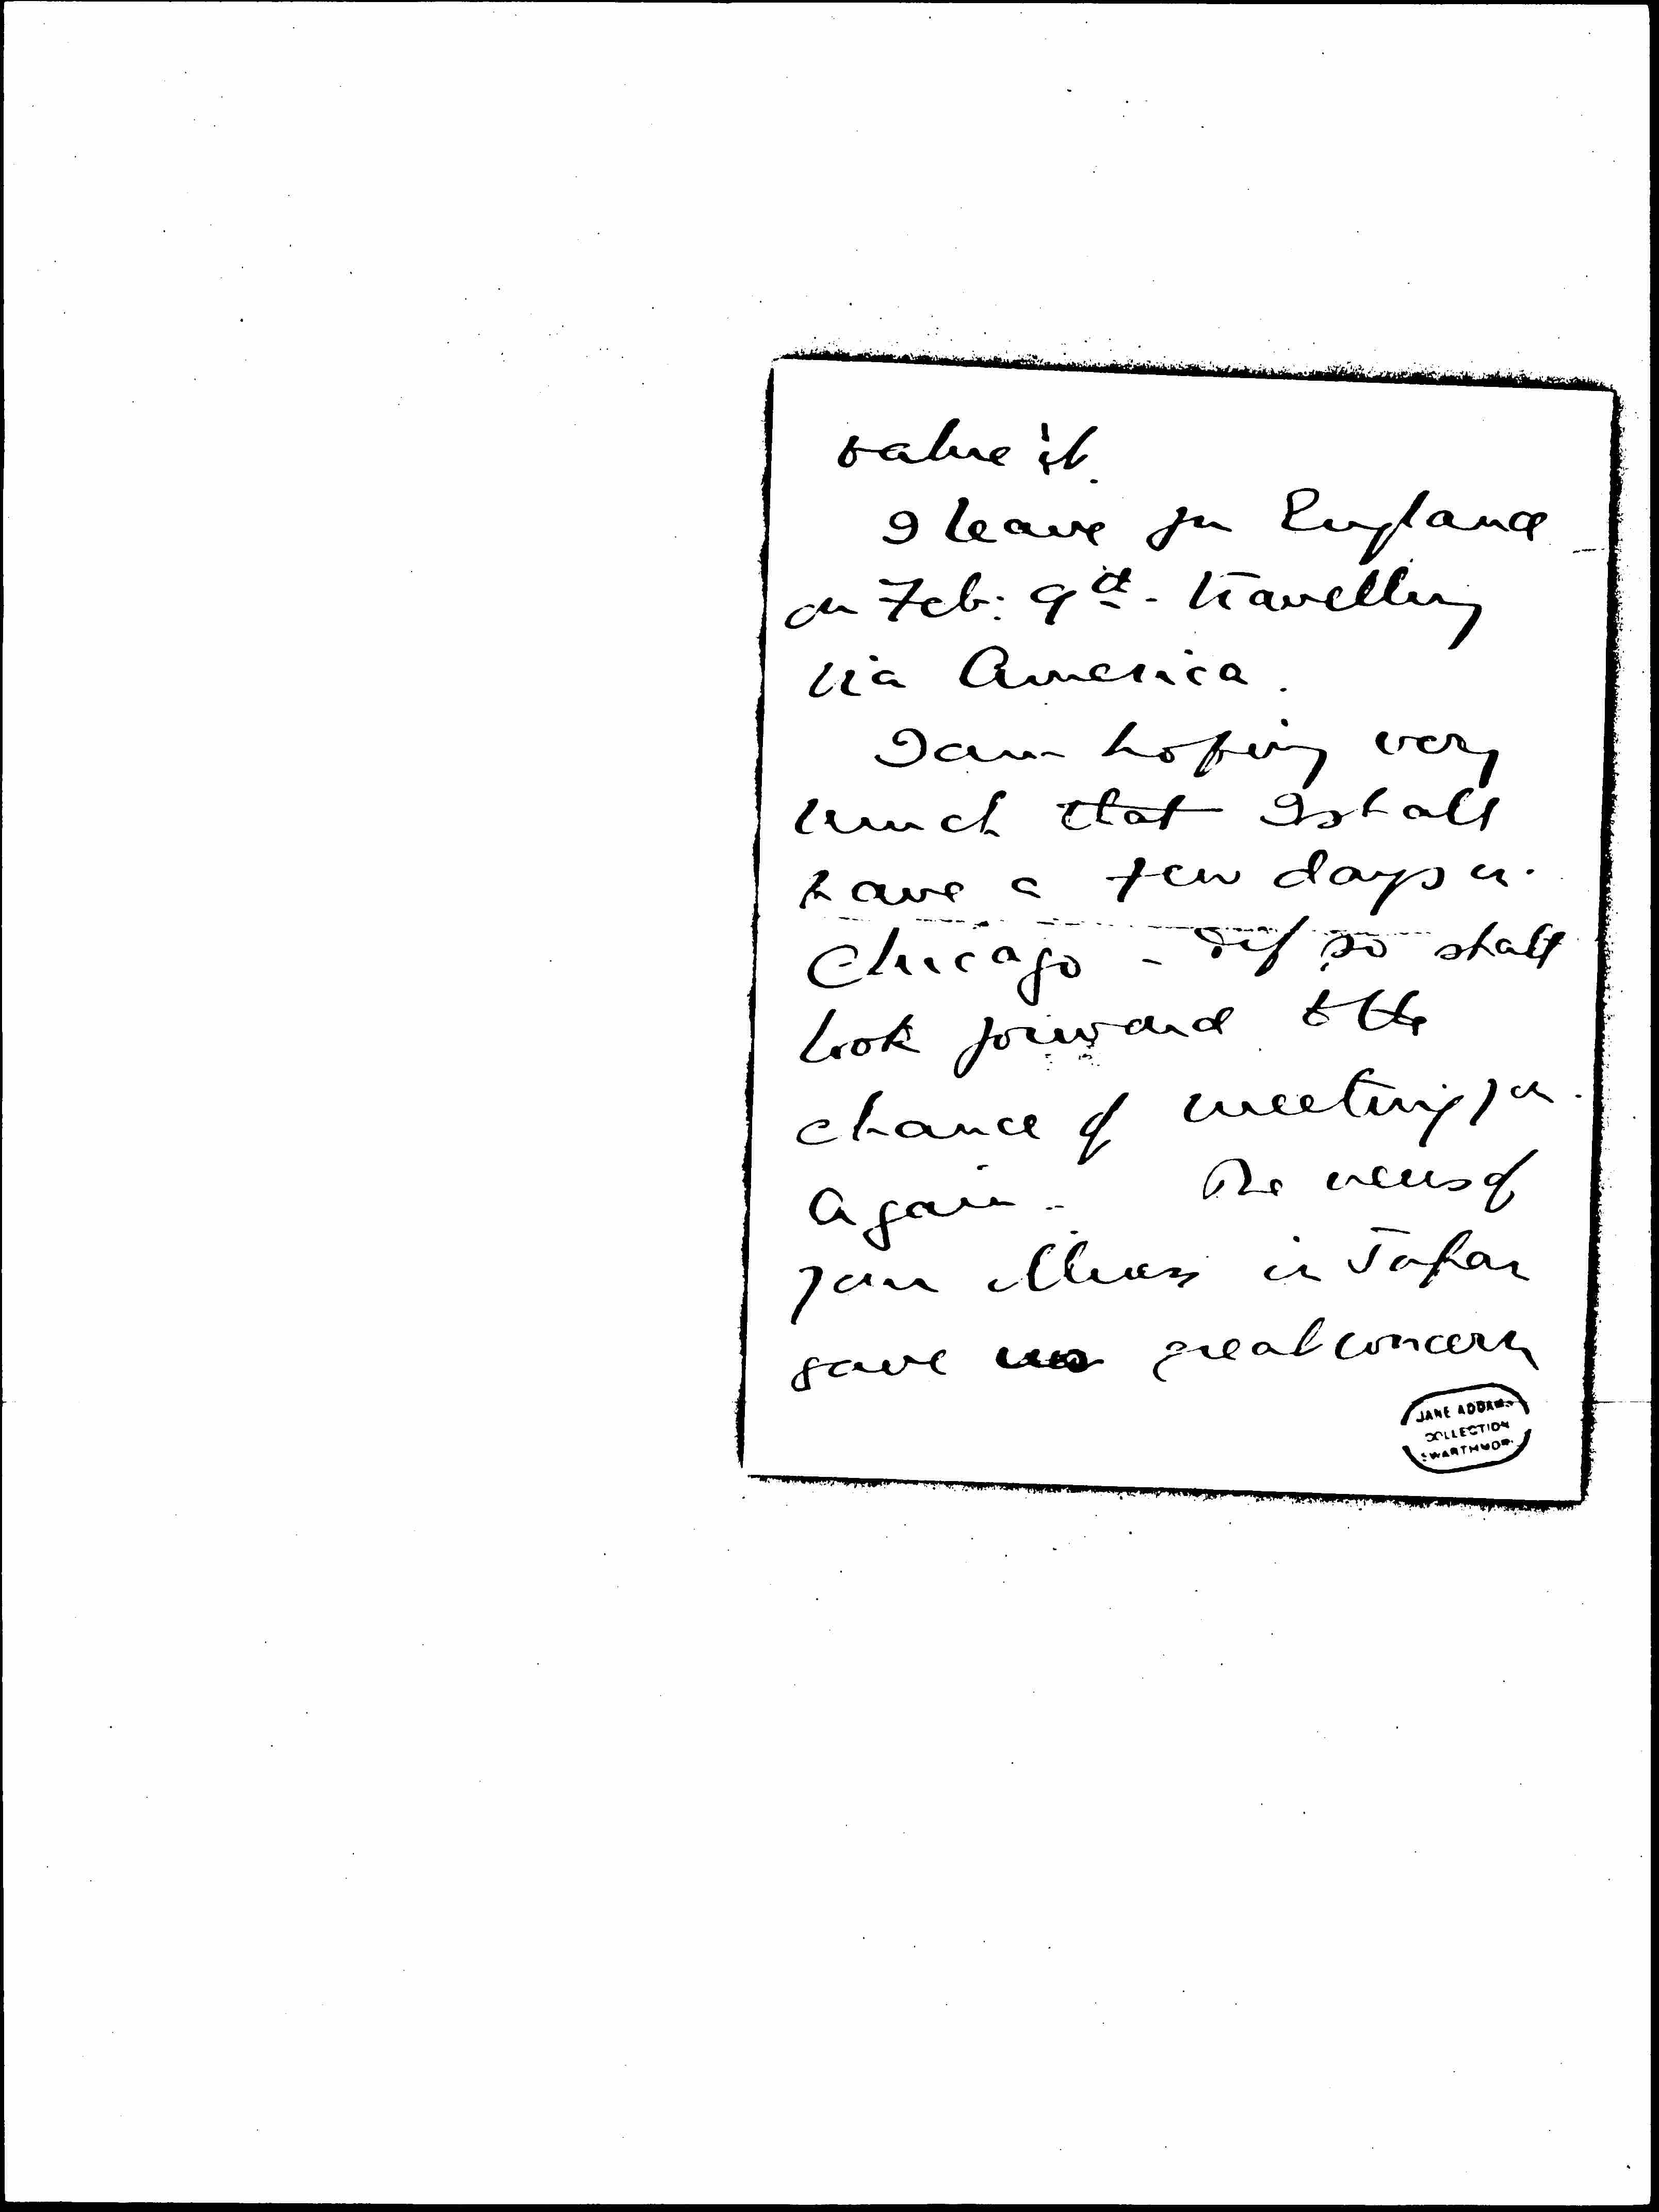 value it.
I leave for England
on Feb: 9th - travelling
via America.
I am hoping very
much that I shall
have a few days in
Chicago - & if so shall
look forward to the
chance of meeting you
again - The news of
your illness in Japan
gave us great concern
JANE ADDAMS
COLLECTION
SWARTHMORE